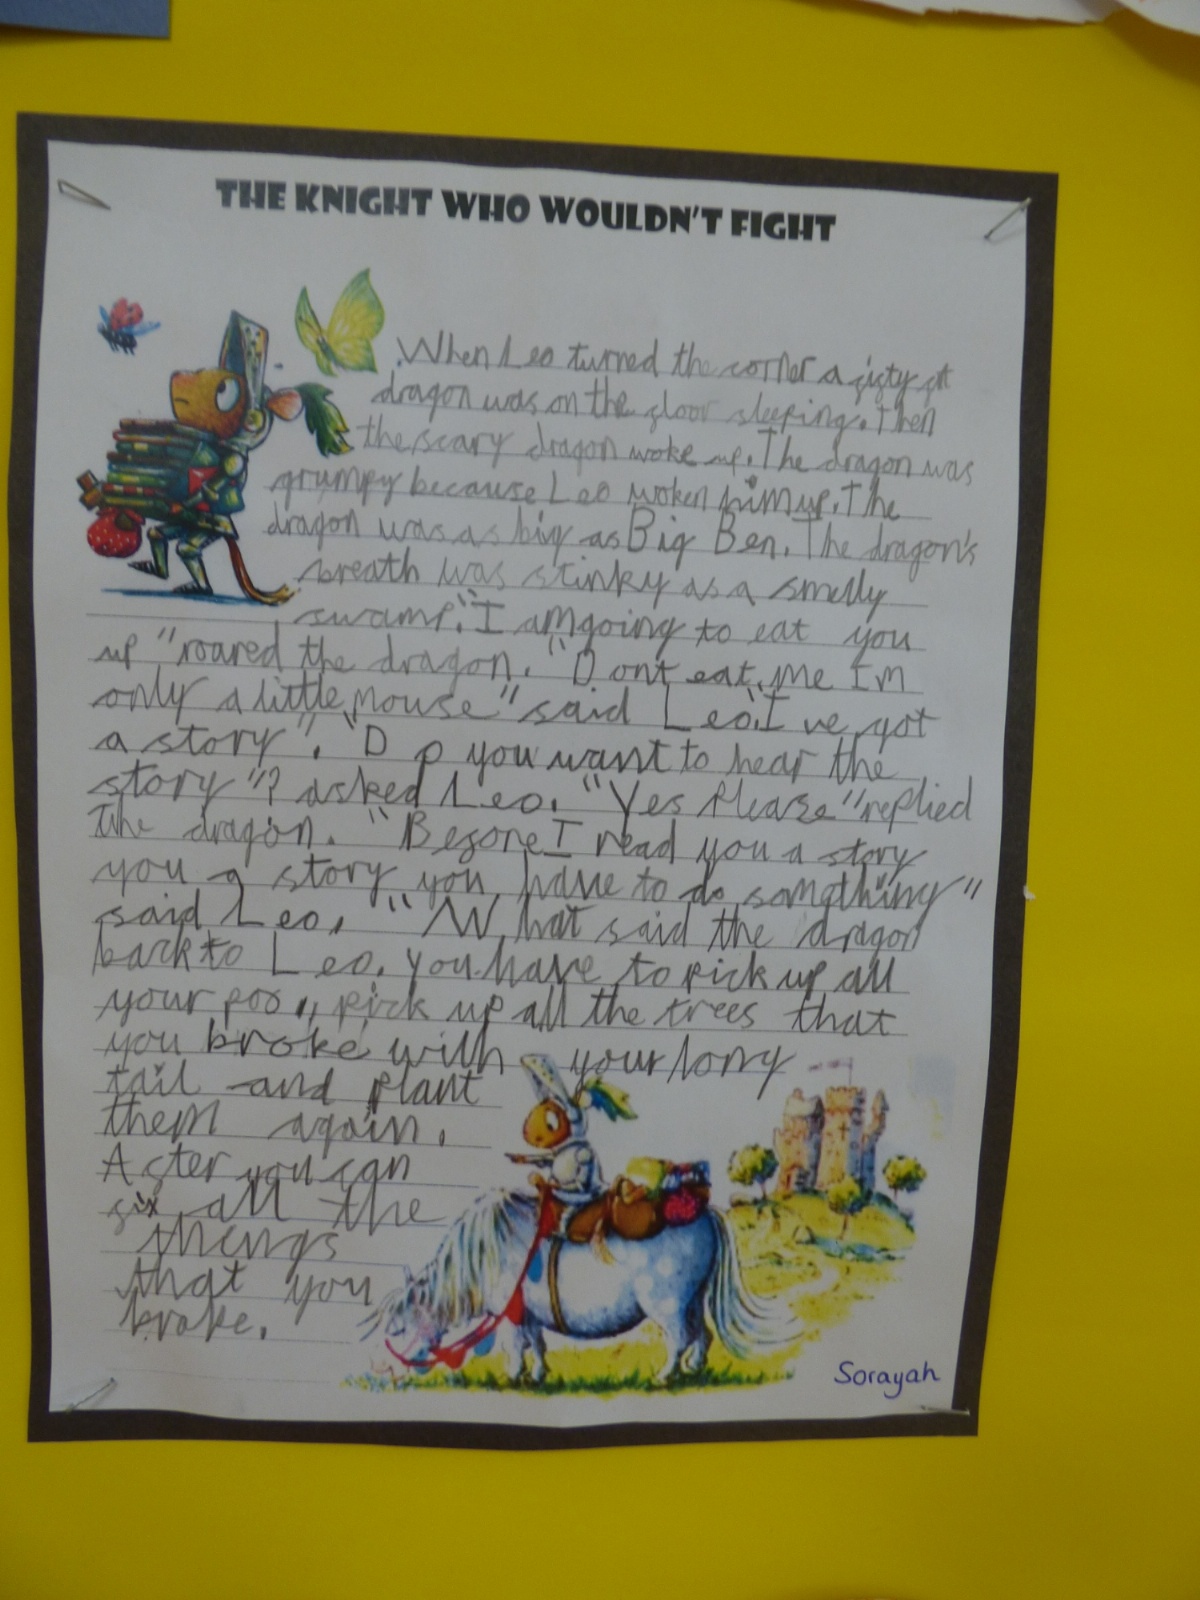 THE KNIGHT WHO WOULDN'T FIGHT
When Leo turned the corner a
dragon was on the floor sleeping. Then
the scary dragon woke up. The dragon was
grumpy because Leo woken him up. The
dragon was as big as Big Ben. The dragon's
breath was stinky as a smelly
swamp. "I am going to eat you
up" roared the dragon. "Dont eat me Im
only a little mouse" said Leo. "I ve got
a story". "Do you want to hear the
story"? asked Leo. "Yes Please" replied
the dragon. "Before I read you a story
you a story you have to do something"
said Leo. "What said the dragon
back to Leo. You have to pick up all
your poo, pick up all the trees that
you broke with your long
tail and plant
them again.
After you can
fix all the
things
that you
broke.
Sorayah